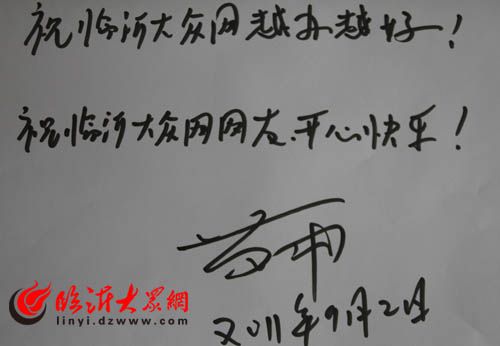 祝临沂大众网越办越好！
祝临沂大众网网友、开心快乐！
2011年9月2日
临沂大众網
linyi.dzwww.com